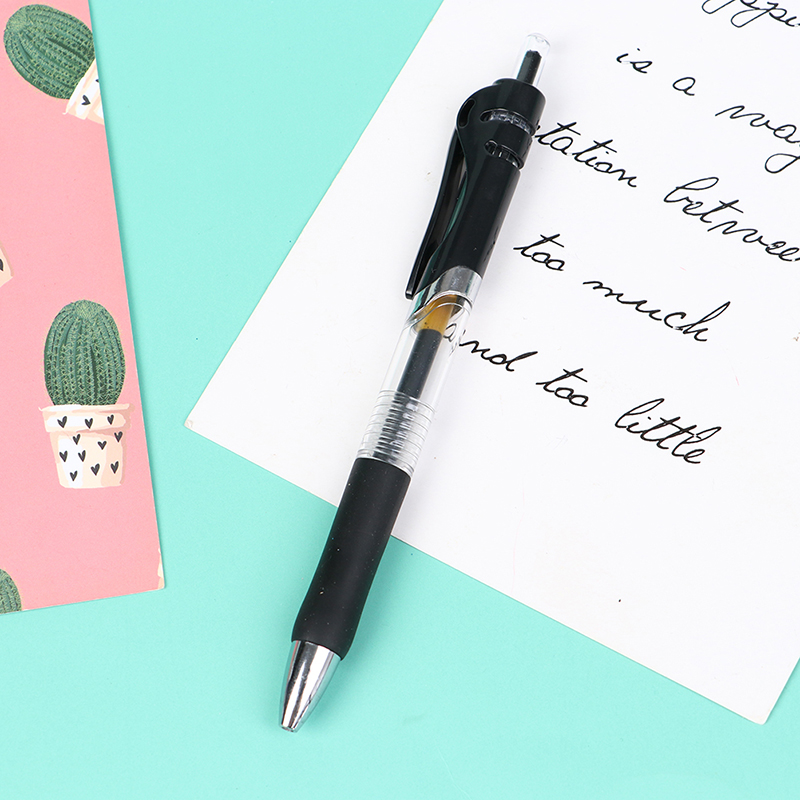 is a way
tation between
too much
and too little